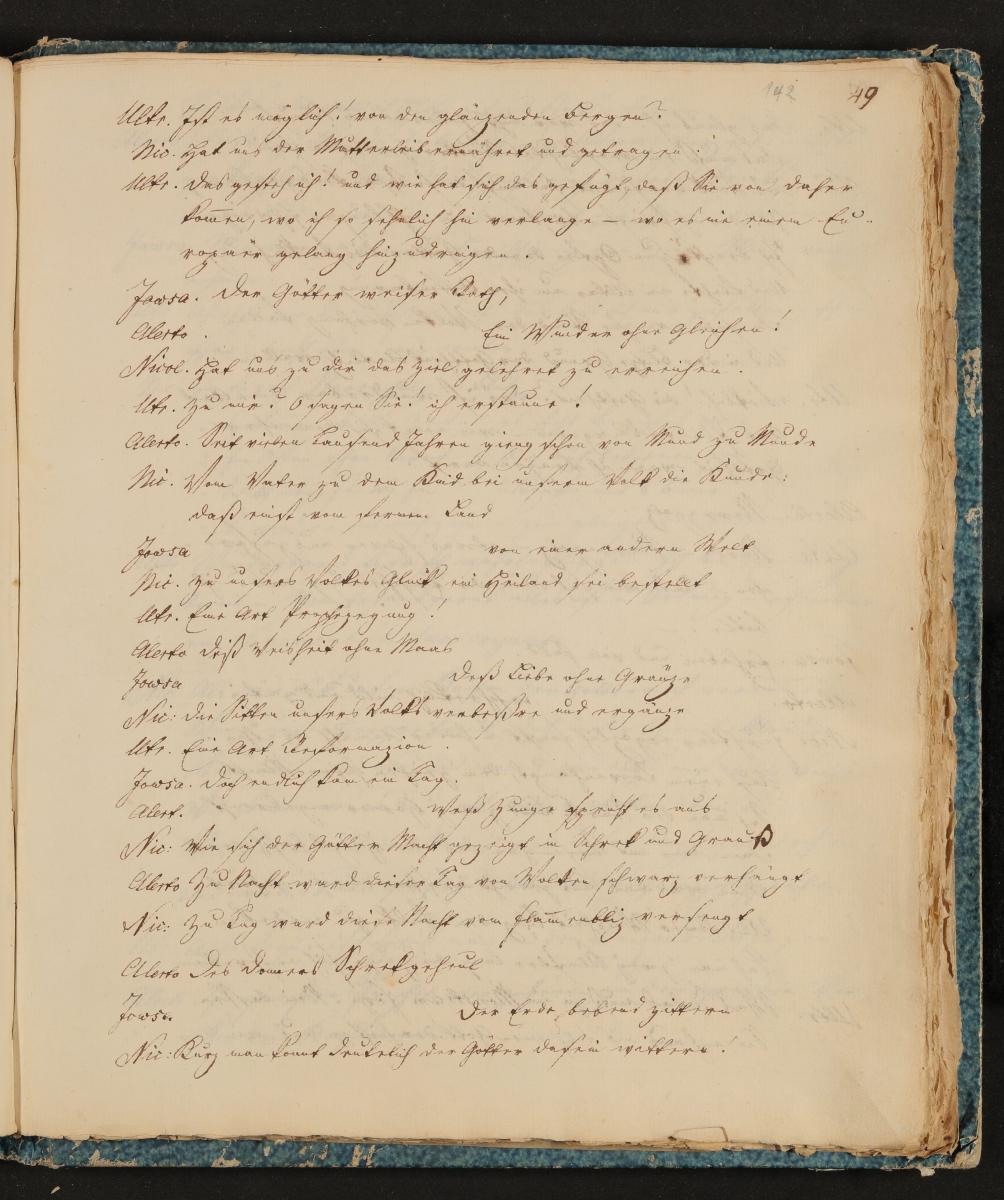 142 49
Ultr. Ist es möglich! von den glänzenden Bergen?
Nic. Hat uns der Mutterleib ernähret und getragen.
Ultr. Das gesteh ich! und wie hat sich das gefügt, daß Sie von daher
kom̄en, wo ich so sehnlich hin verlange – wo es nie einem Eu-
ropäer gelang hinzudringen.
Jowsa. Der Götter weiser Rath,
Alerto. Ein Wunder ohne Gleichen!
Nicol. Hat uns zu dir das Ziel gelehret zu erreichen.
Ultr. Zu mir? O sagen Sie! ich erstaune!
Alerto. Seit vielen tausend Jahren gieng schon von Mund zu Munde
Nic. Vom Vater zu dem Kind bei unserm Volk die Kunde:
daß einst vom fernen Land
Jowsa von einer andern Welt
Nic. zu unsers Volkes Glück ein Heiland sei bestellt
Ultr. Eine Art Prophezeyung!
Alerto Deß Weisheit ohne Maas
Jowsa Deß Liebe ohne Gränze
Nic: die Sitten unsers Volks verbeßre und ergänze
Ultr. Eine Art Reformazion.
Jowsa. Doch endlich kam ein Tag.
Alert. Weß Zunge spricht es aus
Nic: Wie sich der Götter Macht gezeigt in Schrek und Grauß
Alerto Zu Nacht ward dieser Tag von Wolken schwarz verhängt
Nic: Zu Tag ward diese Nacht vom Flam̄enbliz versengt
Alerto Des Donners Schrekgeheul
Jowsa Der Erde bebend zittern
Nic: Kurz man konnt deutelich der Götter dasein wittern!